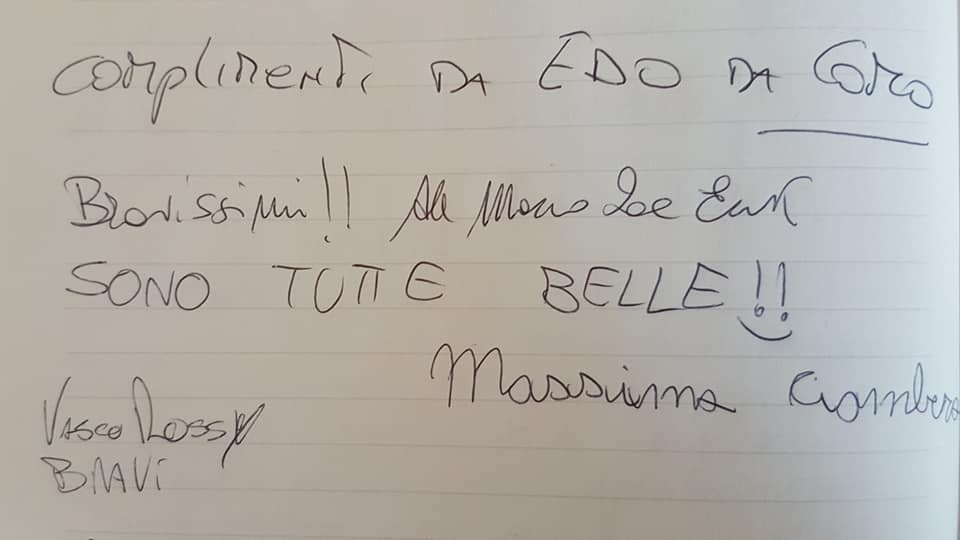 Complimenti DA EDO DA Como
Bravissimi!! Ale
SONO TUTTE BELLE!!
Massimma
Vasco Rossi
BRAVi